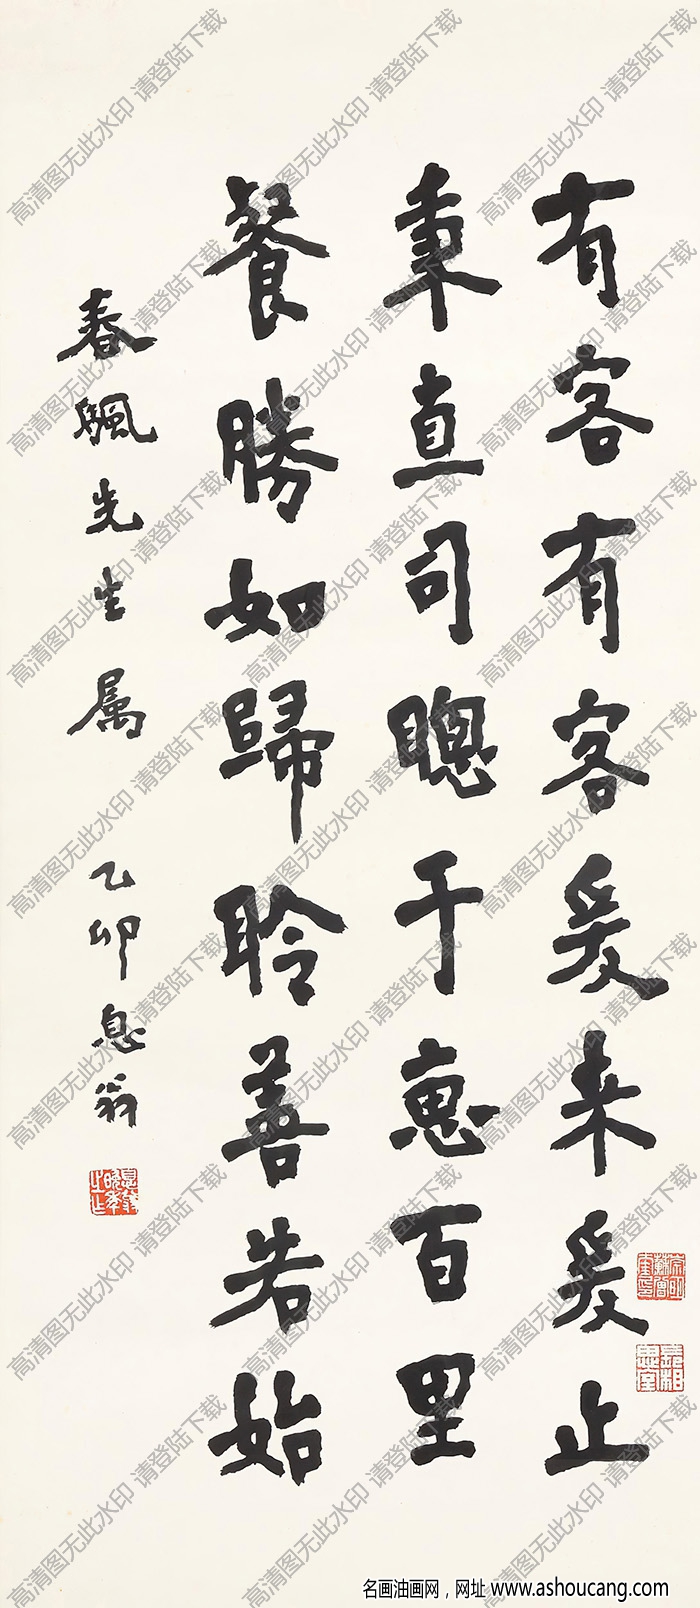 有客有客爰来爰止
秉直司聰于惠百里
餐勝如歸聆善若始
春颿先生属
乙卯息翁
高清图无此水印 请登陆下载
名画油画网，网址 www.ashoucang.com